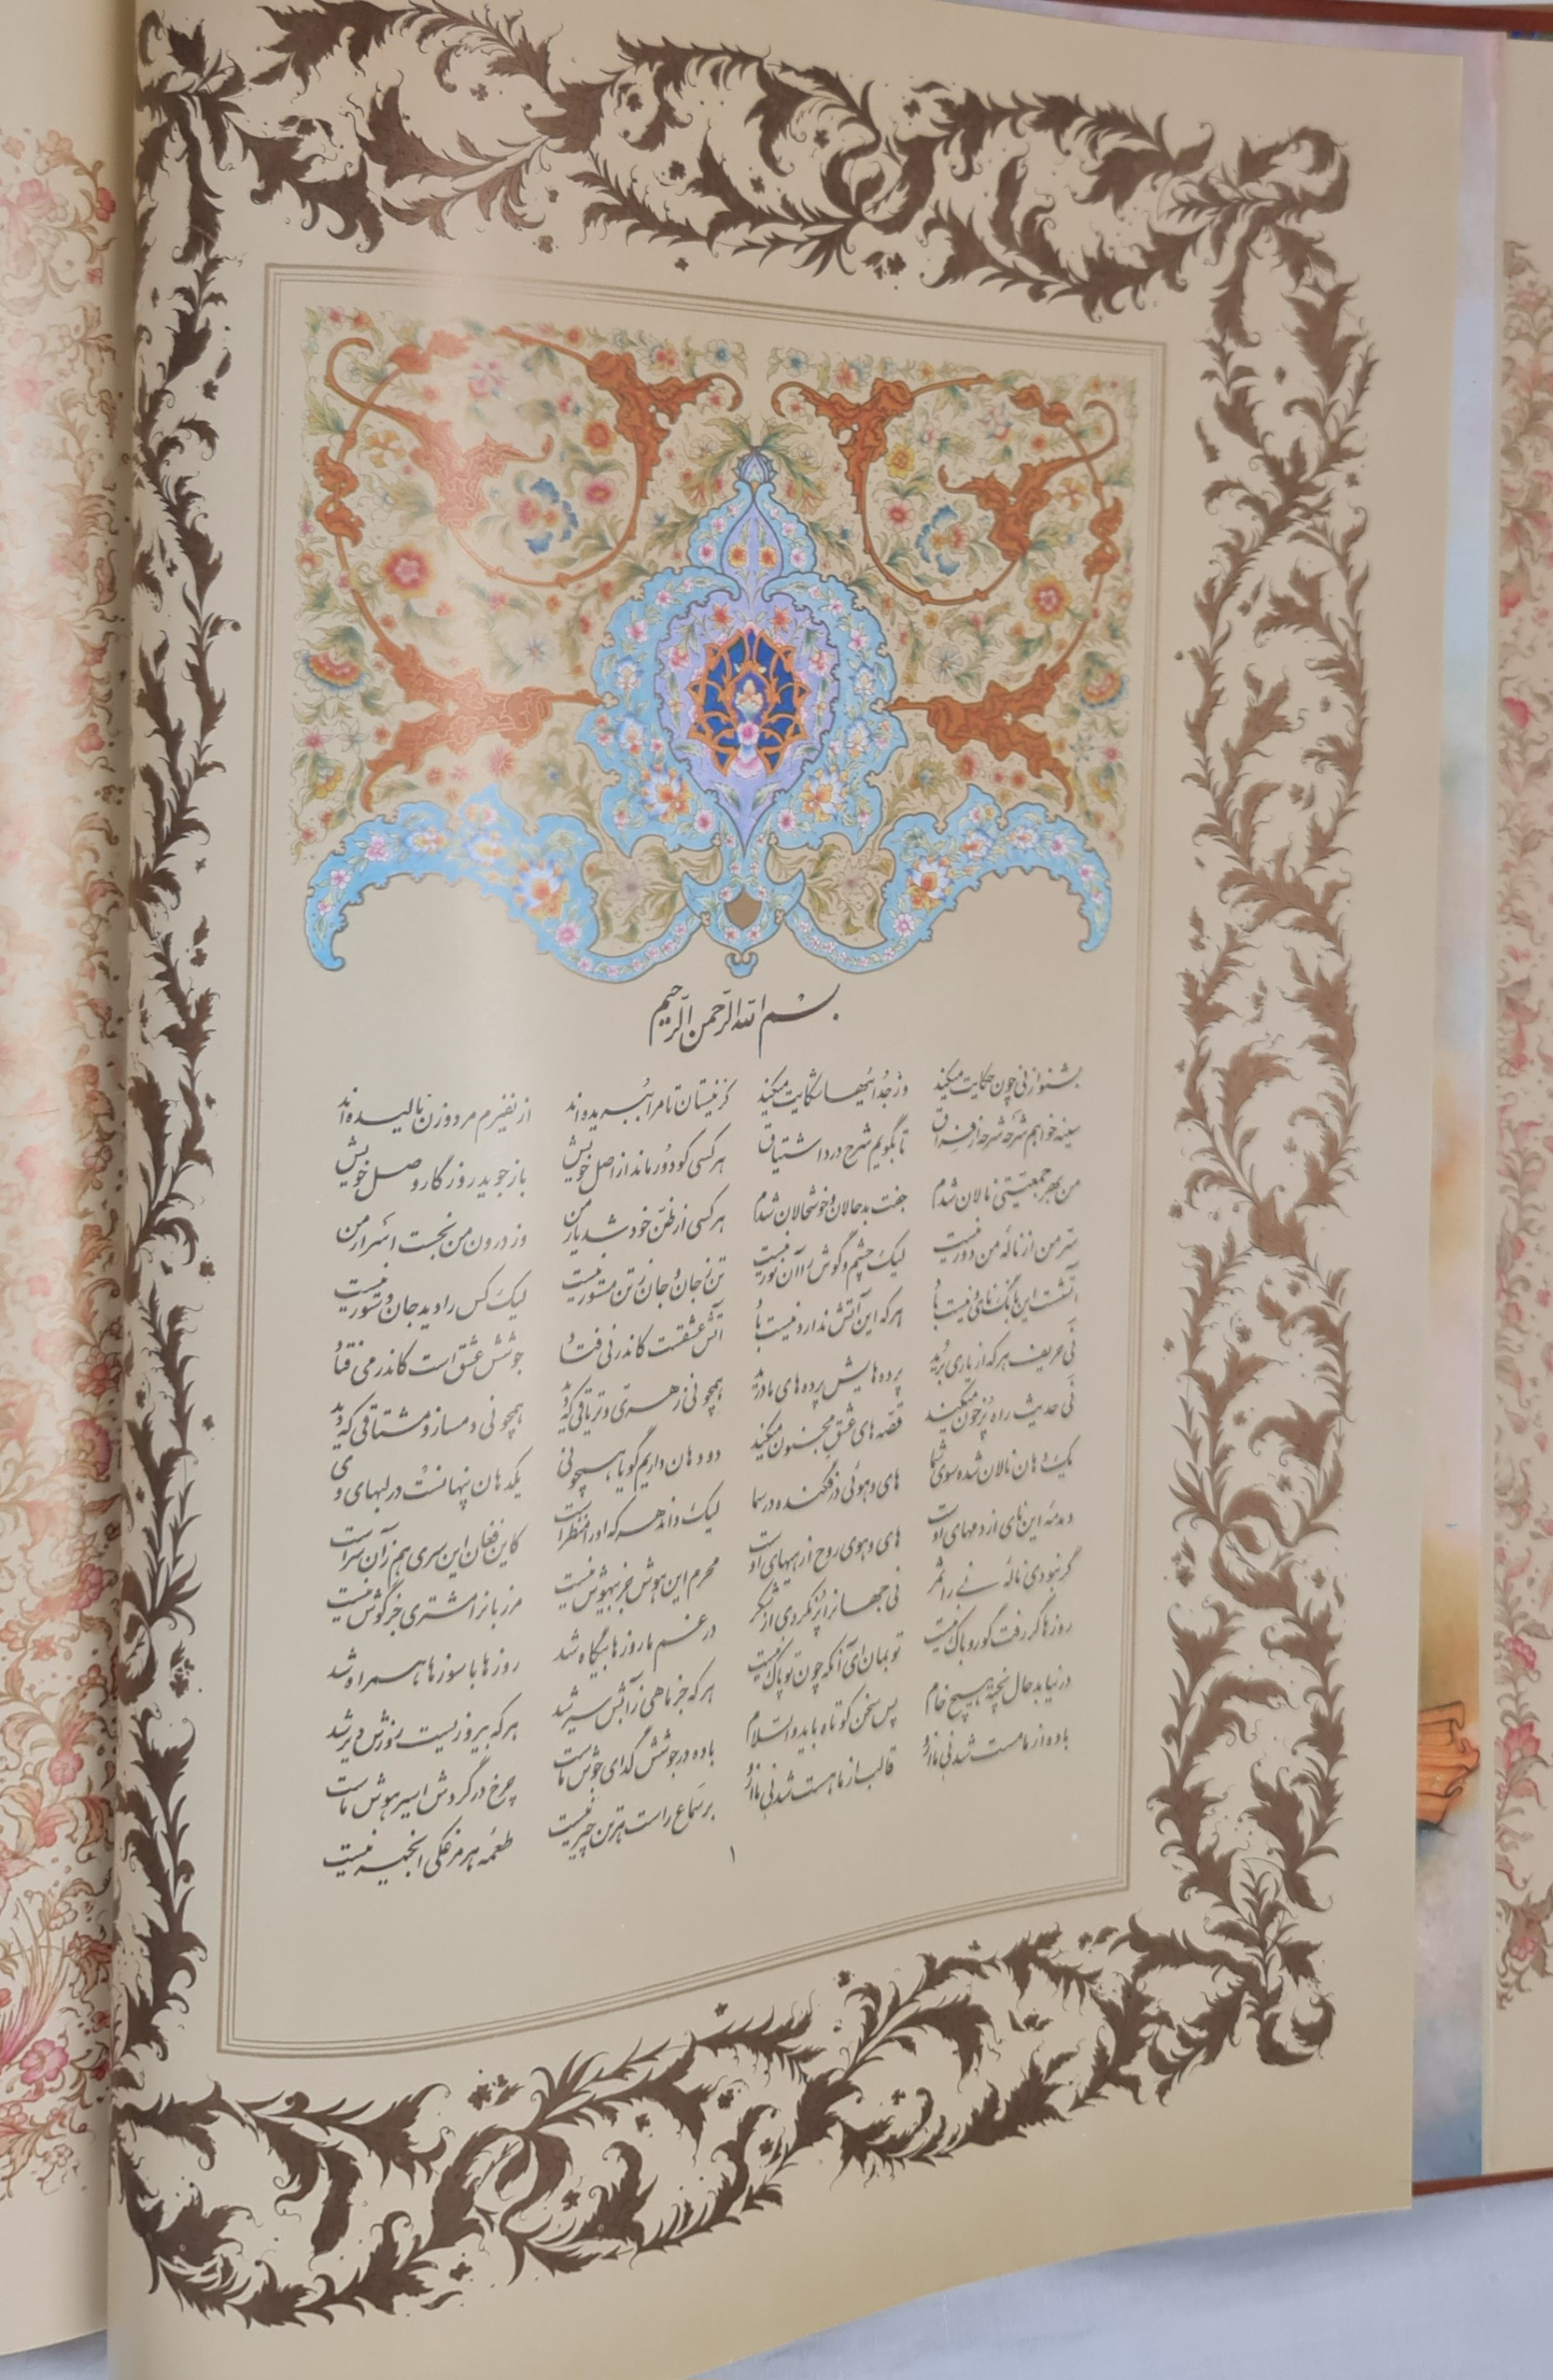 بسم الله الرحمن الرحیم
بشنو از نی چون حکایت میکند وز جدائیها شکایت میکند کز نیستان تا مرا ببریده‌اند از نفیرم مرد و زن نالیده‌اند
سینه خواهم شرحه شرحه از فراق تا بگویم شرح درد اشتیاق هر کسی کو دور ماند از اصل خویش باز جوید روزگار وصل خویش
من بهر جمعیتی نالان شدم جفت بدحالان و خوشحالان شدم هر کسی از ظن خود شد یار من وز درون من نجست اسرار من
سر من از نالهٔ من دور نیست لیک چشم و گوش را آن نور نیست تن ز جان و جان ز تن مستور نیست لیک کس را دید جان دستور نیست
آتشست این بانگ نای و نیست باد هر که این آتش ندارد نیست باد آتش عشقست کاندر نی فتاد جوشش عشق است کاندر می فتاد
نی حریف هر که از یاری برید پرده‌هایش پرده‌های ما درید همچو نی زهری و تریاقی که دید همچو نی دمساز و مشتاقی که دید
نی حدیث راه پرخون میکند قصه‌های عشق مجنون میکند دو دهان داریم گویا همچو نی یکدهان پنهانست در لبهای وی
یک دهان نالان شده سوی شما های و هوئی در فکنده در سما لیک داند هر که او را منظر است کاین فغان این سری هم زآن سراست
دمدمه این نای از دمهای اوست های و هوی روح از هیهای اوست محرم این هوش جز بیهوش نیست مر زبانرا مشتری جز گوش نیست
گر نبودی نالهٔ نی را ثمر نی جهانرا پر نکردی از شکر در غم ما روزها بیگاه شد روزها با سوزها همراه شد
روزها گر رفت گو رو باک نیست تو بمان ای آنکه چون تو پاک نیست هر که جز ماهی ز آبش سیر شد هر که بیروزیست روزش دیر شد
در نیابد حال پخته هیچ خام پس سخن کوتاه باید والسلام باده در جوشش گدای جوش ماست چرخ در گردش اسیر هوش ماست
باده از ما مست شد نی ما ازو قالب از ما هست شد نی ما ازو بر سماع راست هر تن چیر نیست طعمه هر مرغکی انجیر نیست
۱